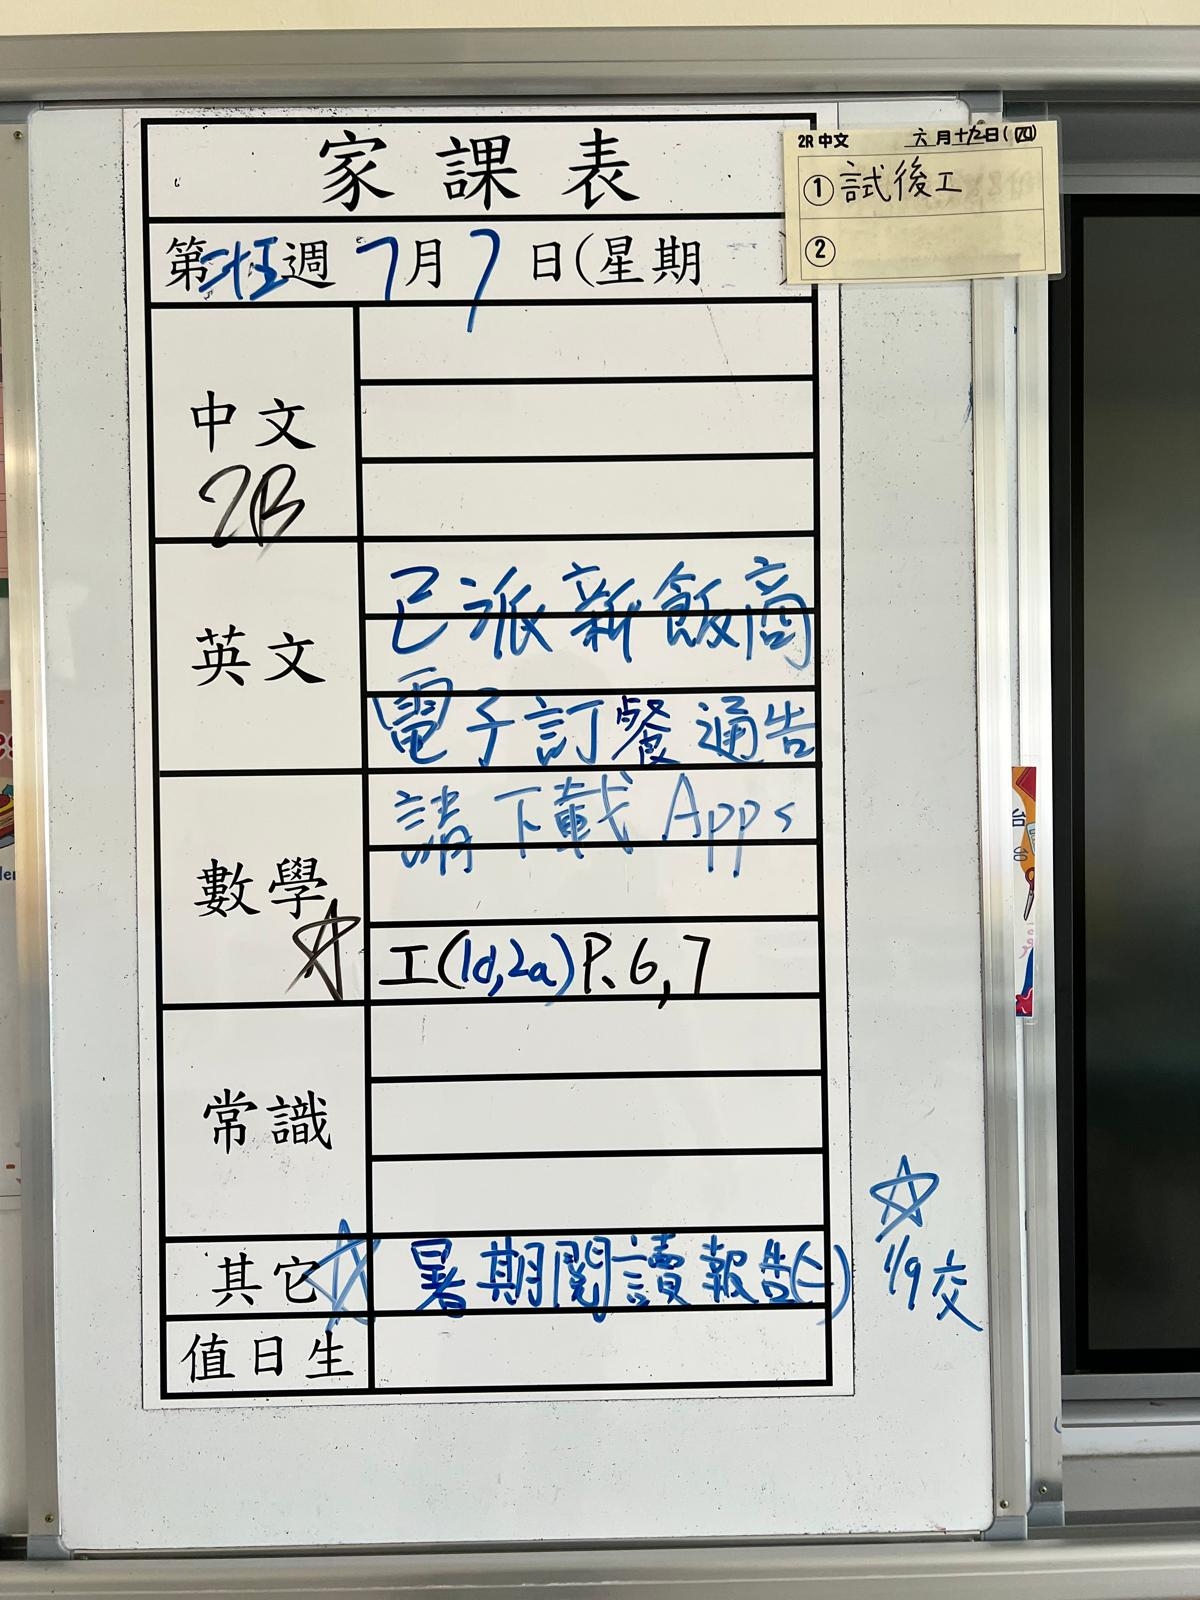 家課表
2R 中文 六月十九日(四)
① 試後工
②
第 週 7月7日(星期
中文
2B
英文
已派新飯商
電子訂餐通告
數學
請下載 Apps
工(1d,2a)P.6,7
常識
其它
暑期閱讀報告(二)
1/9 交
值日生